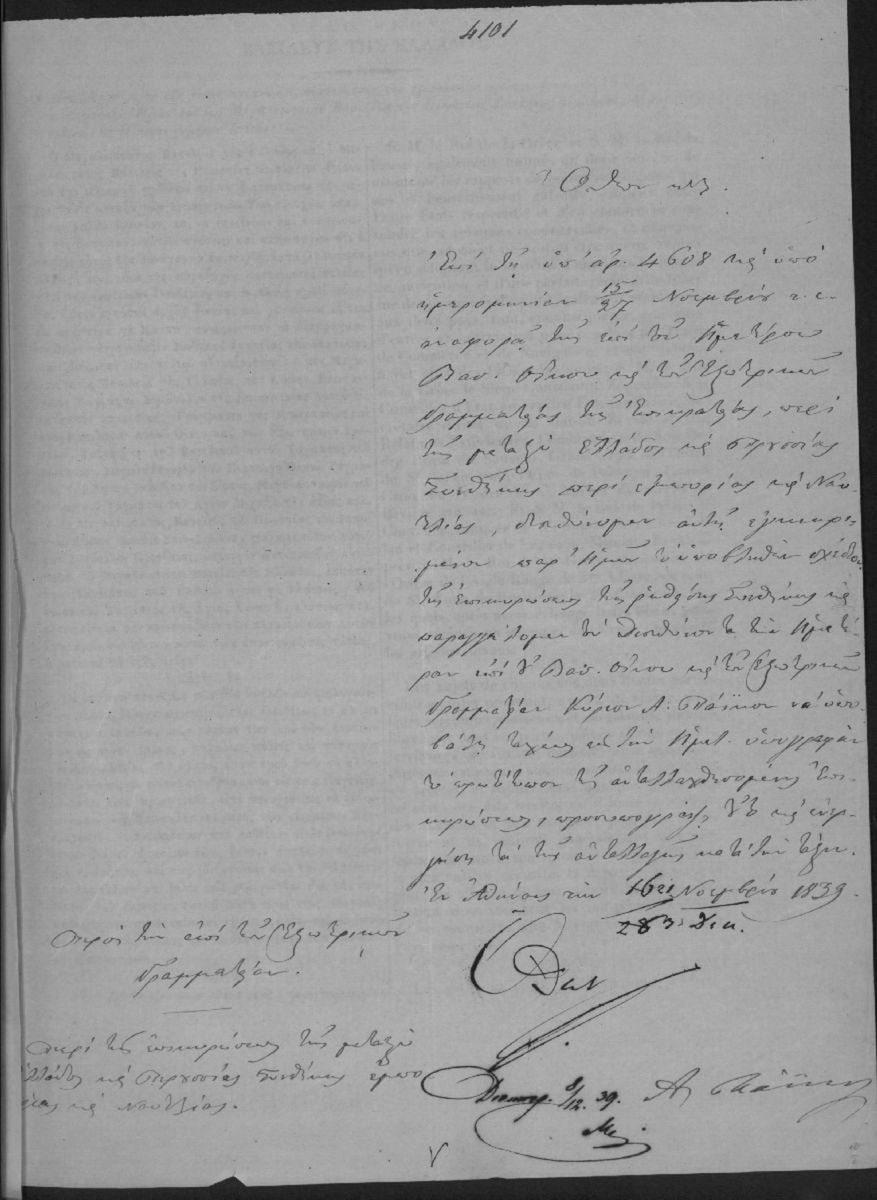 4101
Ὄθων κτλ.
Ἐπὶ τῇ ὑπ' ἀρ. 4608 καὶ ὑπὸ
ἡμερομηνίαν 15/27 Νοεμβρίου τ. ἐ.
ἀναφορᾷ τῆς ἐπὶ τοῦ Ἡμετέρου
Βασ. Οἴκου καὶ τῶν Ἐξωτερικῶν
Γραμματείας τῆς Ἐπικρατείας, περὶ
τῆς μεταξὺ Ἑλλάδος καὶ Πρυσσίας
Συνθήκης περὶ ἐμπορίας καὶ Ναυ-
τιλίας, διευθύνομεν αὐτῇ ἐγκεκρι-
μένον παρ' Ἡμῶν τὸ ὑποβληθὲν σχέδιον
τῆς ἐπικυρώσεως τῆς ῥηθείσης Συνθήκης καὶ
παραγγέλλομεν τὸν διευθύνοντα τὴν Ἡμετέ-
ραν ἐπὶ τοῦ Βασ. Οἴκου καὶ τῶν Ἐξωτερικῶν
Γραμματείαν Κύριον Α. Πάϊκον νὰ ὑπο-
βάλῃ ταχέως εἰς τὴν Ἡμετ. ὑπογραφὴν
τὸ πρωτότυπον τῆς ἀνταλλαχθησομένης Ἐπι-
κυρώσεως, προσυπογράψῃ καὶ ἐνερ-
γήσῃ τὰ τῆς ἀνταλλαγῆς κατὰ τὴν τάξιν.
Ἐν Ἀθήναις τὴν 16/28 Νοεμβρίου 1839.
Δεκ.
Ὄθων
Πρὸς τὴν ἐπὶ τῶν Ἐξωτερικῶν
Γραμματείαν.
Περὶ τῆς ἐπικυρώσεως τῆς μεταξὺ
Ἑλλάδος καὶ Πρυσσίας Συνθήκης ἐμπο-
ρίας καὶ Ναυτιλίας.
8/12 39.
Α. Πάϊκος